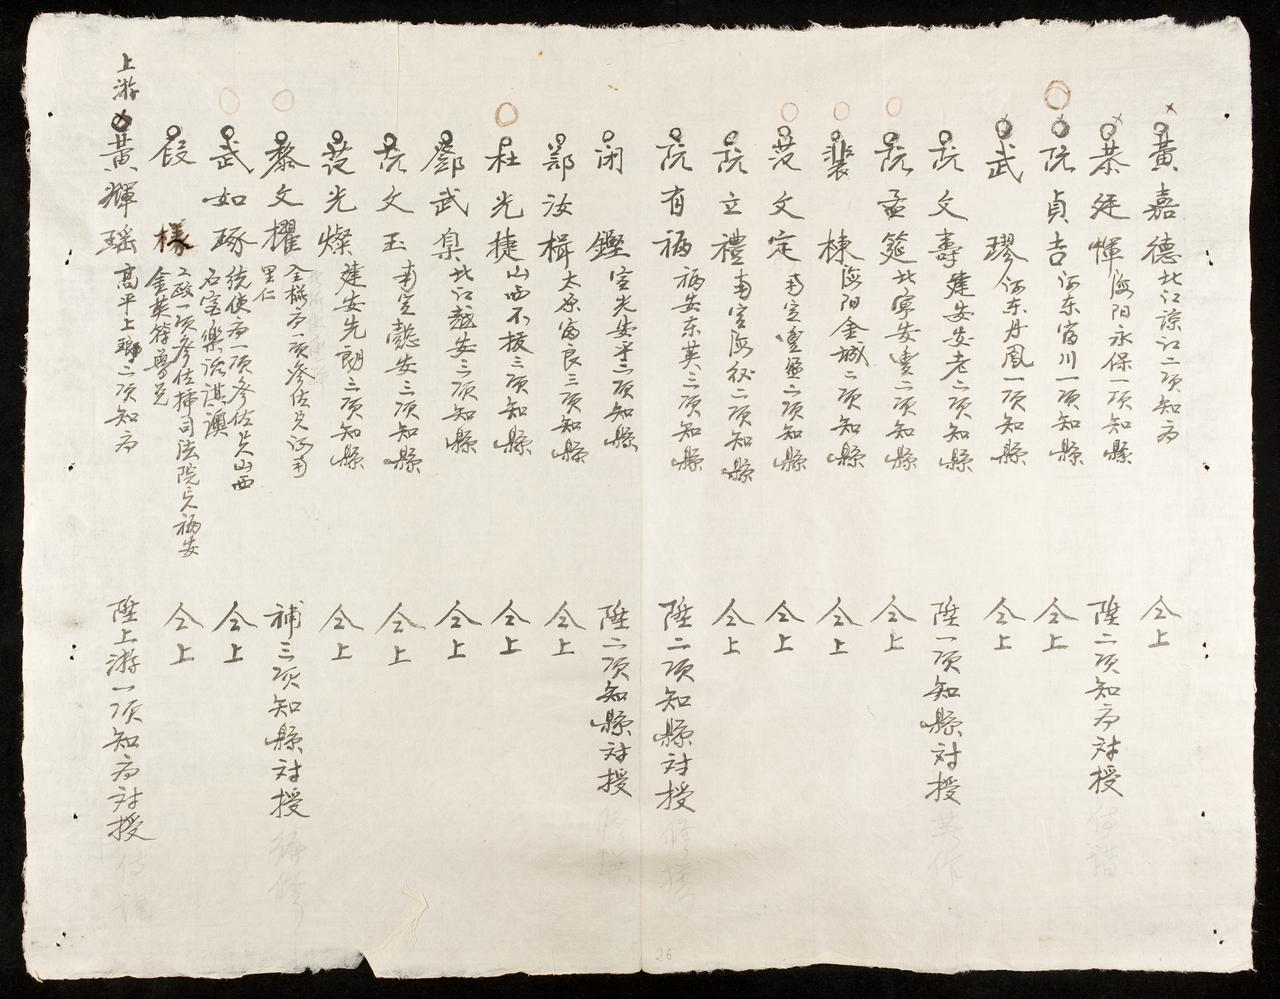 黃嘉德 北江諒江二項知府 仝上
廷惲 海陽永保一項知縣 陞二項知府対授
阮貞吉 河东富川一項知縣 仝上
武璆 河东丹凰一項知縣 仝上
阮文壽 建安安老二項知縣 陞一項知縣対授
阮孟筵 北寧安豊二項知縣 仝上
裴棟 海阳金城二項知縣 仝上
范文定 南定豊盈二項知縣 仝上
阮立禮 南定海後二項知縣 仝上
阮有福 福安东英三項知縣 陞二項知縣対授
閉鏗 宣光安平三項知縣 陞二項知縣対授
鄒汝楫 太原富良三項知縣 仝上
杜光捷 山西不拔三項知縣 仝上
鄧武 北江越安三項知縣 仝上
阮文玉 南定懿安三項知縣 仝上
范光燦 建安先朗三項知縣 仝上
黎文擢 仝樣府一項參佐 河南
里仁 補三項知縣対授
武如琢 統使府一項參佐 山西
石室 仝上
段樣 二政一項參佐 司法院 福安
金英 仝上
上游 黃輝瑶 高平上琅二項知府 陞上游一項知府対授
26